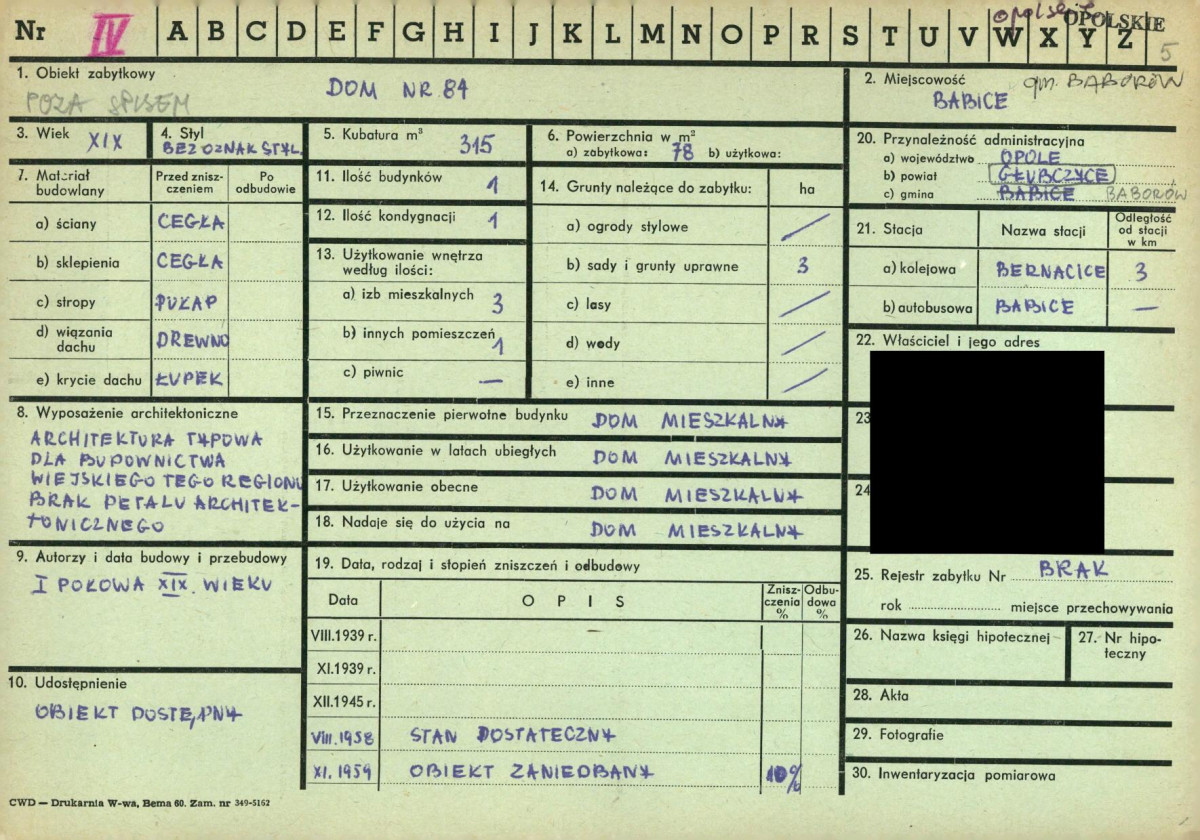 Nr IV A B C D E F G H I J K L M N O P R S T U V W X Y Z
opolskie OPOLSKIE
5
1. Obiekt zabytkowy
POZA SPISEM
DOM NR 84
2. Miejscowość gm. BABORÓW
BABICE
3. Wiek XIX
4. Styl
BEZ OZNAK STYL.
5. Kubatura m³ 315
6. Powierzchnia w m²
a) zabytkowa: 78 b) użytkowa:
20. Przynależność administracyjna
a) województwo OPOLE
b) powiat GŁUBCZYCE
c) gmina BABICE BABORÓW
7. Materiał budowlany
Przed zniszczeniem
Po odbudowie
a) ściany CEGŁA
b) sklepienia CEGŁA
c) stropy PUŁAP
d) wiązania dachu DREWNO
e) krycie dachu ŁUPEK
11. Ilość budynków 1
12. Ilość kondygnacji 1
13. Użytkowanie wnętrza
według ilości:
a) izb mieszkalnych 3
b) innych pomieszczeń 1
c) piwnic —
14. Grunty należące do zabytku: ha
a) ogrody stylowe /
b) sady i grunty uprawne 3
c) lasy /
d) wody /
e) inne /
21. Stacja Nazwa stacji Odległość od stacji w km
a) kolejowa BERNACICE 3
b) autobusowa BABICE —
22. Właściciel i jego adres
23
24
8. Wyposażenie architektoniczne
ARCHITEKTURA TYPOWA
DLA BUDOWNICTWA
WIEJSKIEGO TEGO REGIONU
BRAK DETALU ARCHITEK-
TONICZNEGO
15. Przeznaczenie pierwotne budynku DOM MIESZKALNY
16. Użytkowanie w latach ubiegłych DOM MIESZKALNY
17. Użytkowanie obecne DOM MIESZKALNY
18. Nadaje się do użycia na DOM MIESZKALNY
9. Autorzy i data budowy i przebudowy
I POŁOWA XIX. WIEKU
10. Udostępnienie
OBIEKT DOSTĘPNY
19. Data, rodzaj i stopień zniszczeń i odbudowy
Data OPIS Zniszczenia % Odbudowa %
VIII.1939 r. –
XI.1939 r.
XII.1945 r.
VIII.1958 STAN DOSTATECZNY
XI.1959 OBIEKT ZANIEDBANY 10%
25. Rejestr zabytku Nr BRAK
rok miejsce przechowywania
26. Nazwa księgi hipotecznej
27. Nr hipoteczny
28. Akta
29. Fotografie
30. Inwentaryzacja pomiarowa
CWD — Drukarnia W-wa, Bema 60. Zam. nr 349-5162